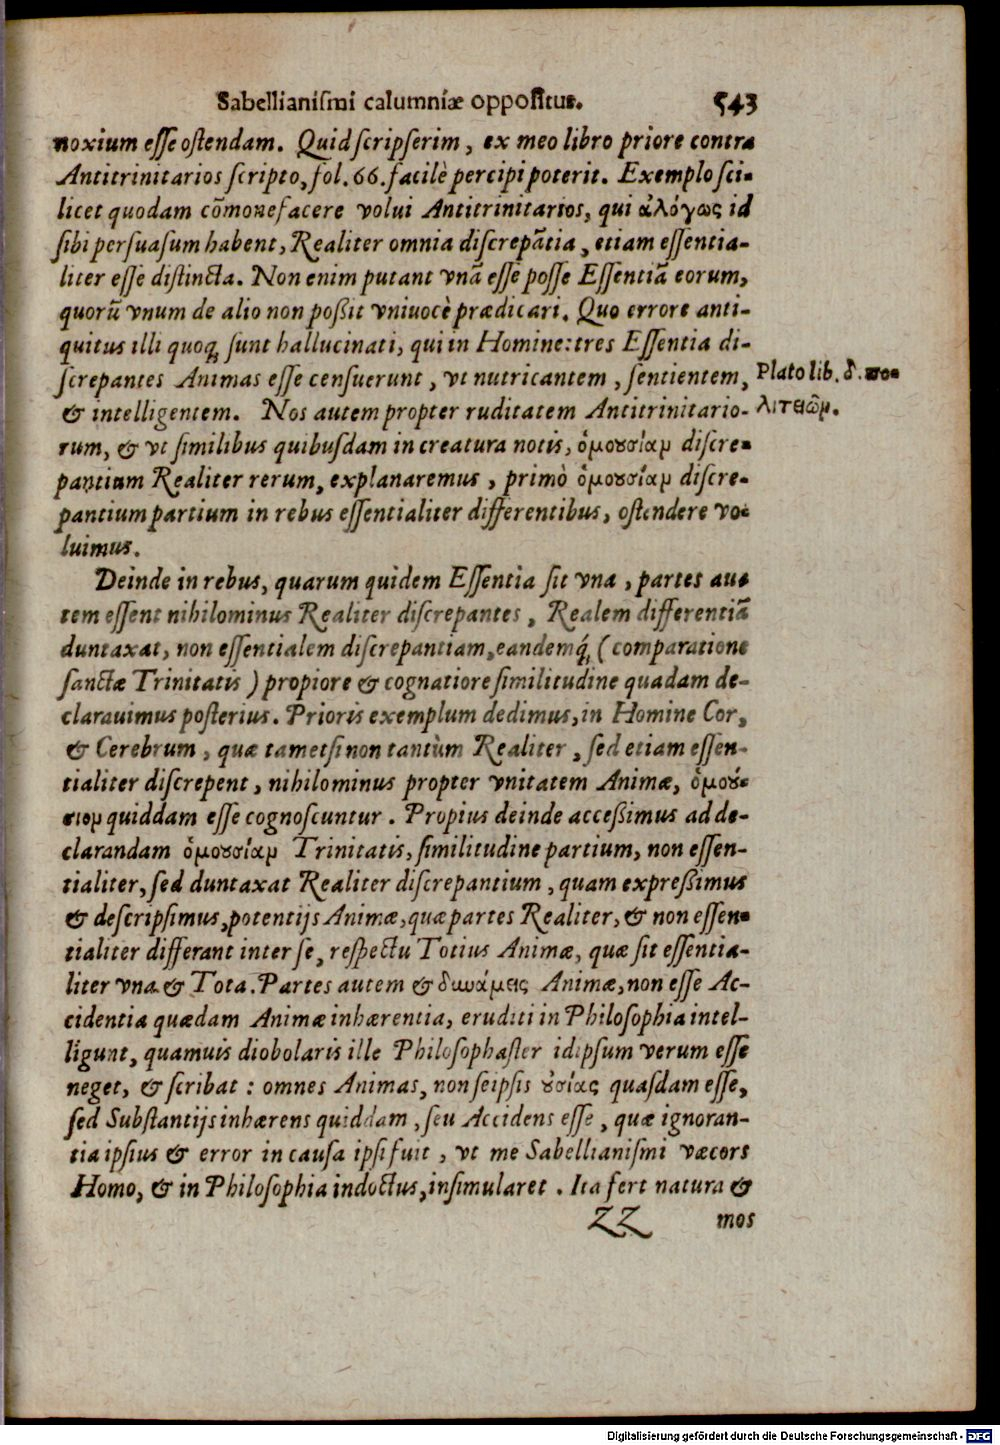 Sabellianiſmi calumniæ oppoſitus. 543
noxium eſſe oſtendam. Quid ſcripſerim, ex meo libro priore contra
Antitrinitarios ſcripto, fol. 66. facilè percipi poterit. Exemplo ſci-
licet quodam cõmonefacere volui Antitrinitarios, qui ἀλόγως id
ſibi perſuaſum habent, Realiter omnia diſcrepãtia, etiam eſſentia-
liter eſſe diſtincta. Non enim putant vnã eſſe poſſe Eſſentiã eorum,
quorũ vnum de alio non poßit vniuocè prædicari. Quo errore anti-
quitus illi quoq; ſunt hallucinati, qui in Homine: tres Eſſentia di-
ſcrepantes Animas eſſe cenſuerunt, vt nutricantem, ſentientem,
Plato lib. δ. πο-
& intelligentem. Nos autem propter ruditatem Antitrinitario-
λιτειῶν.
rum, & vt ſimilibus quibuſdam in creatura notis, ὁμουσίαν diſcre-
pantium Realiter rerum, explanaremus, primò ὁμουσίαν diſcre-
pantium partium in rebus eſſentialiter differentibus, oſtendere vo-
luimus.
Deinde in rebus, quarum quidem Eſſentia ſit vna, partes au-
tem eſſent nihilominus Realiter diſcrepantes, Realem differentiã
duntaxat, non eſſentialem diſcrepantiam, eandemq́; (comparatione
ſanctæ Trinitatis) propiore & cognatiore ſimilitudine quadam de-
clarauimus poſterius. Prioris exemplum dedimus, in Homine Cor,
& Cerebrum, quæ tametſi non tantùm Realiter, ſed etiam eſſen-
tialiter diſcrepent, nihilominus propter vnitatem Animæ, ὁμού-
σιον quiddam eſſe cognoſcuntur. Propius deinde acceßimus ad de-
clarandam ὁμουσίαν Trinitatis, ſimilitudine partium, non eſſen-
tialiter, ſed duntaxat Realiter diſcrepantium, quam expreßimus
& deſcripſimus, potentijs Animæ, quæ partes Realiter, & non eſſen-
tialiter differant inter ſe, reſpectu Totius Animæ, quæ ſit eſſentia-
liter vna & Tota. Partes autem & δυνάμεις Animæ, non eſſe Ac-
cidentia quædam Animæ inhærentia, eruditi in Philoſophia intel-
ligunt, quamuis diobolaris ille Philoſophaſter idipſum verum eſſe
neget, & ſcribat: omnes Animas, non ſeipſis οὐσίας quaſdam eſſe,
ſed Subſtantijs inhærens quiddam, ſeu Accidens eſſe, quæ ignoran-
tia ipſius & error in cauſa ipſi fuit, vt me Sabellianiſmi væcors
Homo, & in Philoſophia indoctus, inſimularet. Ita fert natura &
ZZ mos
Digitalisierung gefördert durch die Deutsche Forschungsgemeinschaft - DFG